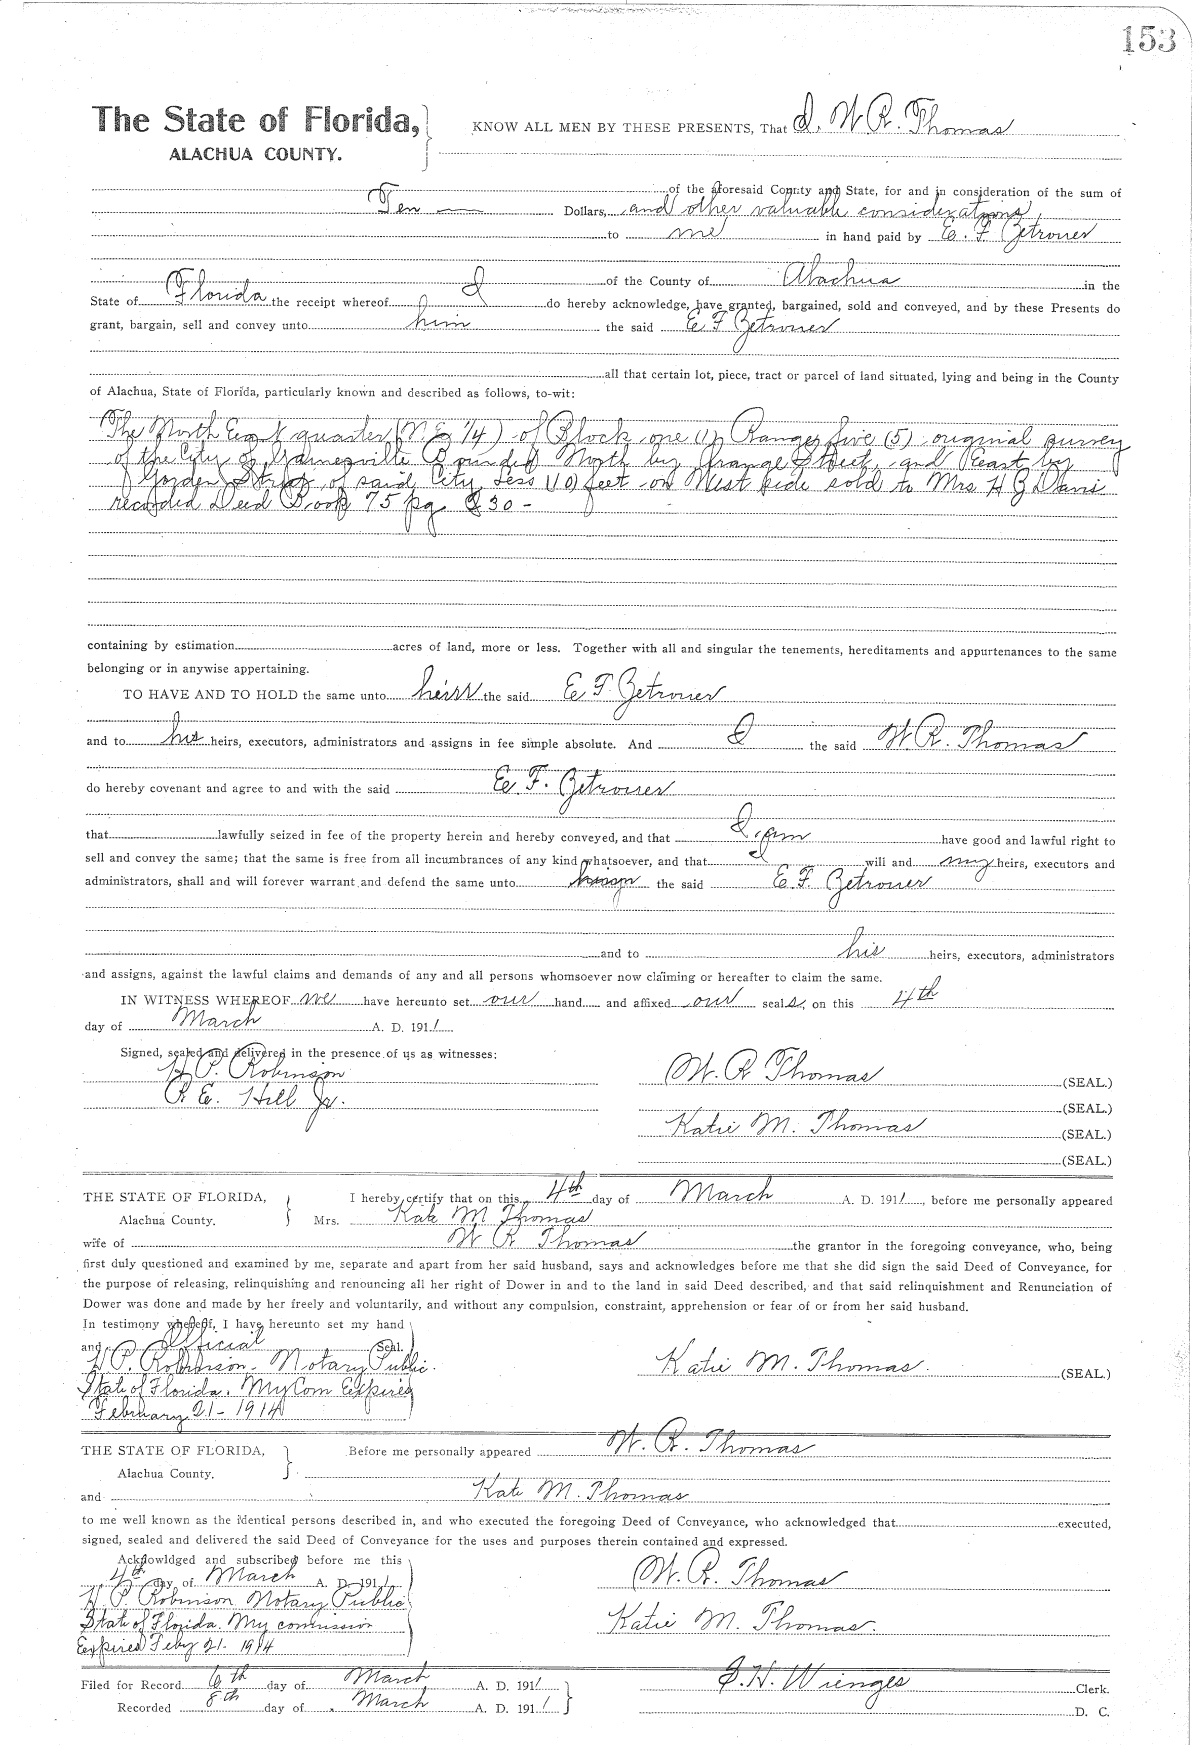 153
The State of Florida,
ALACHUA COUNTY.
KNOW ALL MEN BY THESE PRESENTS, That I, W. R. Thomas
of the aforesaid County and State, for and in consideration of the sum of
Ten — Dollars, and other valuable considerations,
to me in hand paid by E. F. Zetrouer
of the County of Alachua in the
State of Florida the receipt whereof I do hereby acknowledge, have granted, bargained, sold and conveyed, and by these Presents do
grant, bargain, sell and convey unto him the said E F Zetrouer
all that certain lot, piece, tract or parcel of land situated, lying and being in the County
of Alachua, State of Florida, particularly known and described as follows, to-wit:
The North East quarter (N. E 1/4) of Block one (1), Range five (5) original survey
of the City of Gainesville Bounded North by Orange Street, and East by
Street, of said City, Less (10) feet on West side sold to Mrs H Davis
recorded Deed Book 75 pg 830 -
containing by estimation acres of land, more or less. Together with all and singular the tenements, hereditaments and appurtenances to the same
belonging or in anywise appertaining.
TO HAVE AND TO HOLD the same unto the said E F. Zetrouer
and to his heirs, executors, administrators and assigns in fee simple absolute. And I the said W. R. Thomas
do hereby covenant and agree to and with the said E. F. Zetrouer
that lawfully seized in fee of the property herein and hereby conveyed, and that I am have good and lawful right to
sell and convey the same; that the same is free from all incumbrances of any kind whatsoever, and that I will and my heirs, executors and
administrators, shall and will forever warrant and defend the same unto the said E. F. Zetrouer
and to his heirs, executors, administrators
and assigns, against the lawful claims and demands of any and all persons whomsoever now claiming or hereafter to claim the same.
IN WITNESS WHEREOF we have hereunto set our hand and affixed our seals, on this 4th
day of March A. D. 1911
Signed, sealed and delivered in the presence of us as witnesses:
H. P. Robinson
R. E. Hill Jr.
W. R Thomas (SEAL.)
(SEAL.)
Katie M. Thomas (SEAL.)
(SEAL.)
THE STATE OF FLORIDA,
Alachua County.
I hereby certify that on this 4th day of March A. D. 1911, before me personally appeared
Mrs. Kate M Thomas
wife of W R Thomas the grantor in the foregoing conveyance, who, being
first duly questioned and examined by me, separate and apart from her said husband, says and acknowledges before me that she did sign the said Deed of Conveyance, for
the purpose of releasing, relinquishing and renouncing all her right of Dower in and to the land in said Deed described, and that said relinquishment and Renunciation of
Dower was done and made by her freely and voluntarily, and without any compulsion, constraint, apprehension or fear of or from her said husband.
In testimony whereof, I have hereunto set my hand
and Official Seal.
H P. Robinson. Notary Public.
State of Florida. My Com Expires
February 21 - 1914
Katie M. Thomas. (SEAL.)
THE STATE OF FLORIDA,
Alachua County.
Before me personally appeared W. R. Thomas
and Kate M. Thomas
to me well known as the identical persons described in, and who executed the foregoing Deed of Conveyance, who acknowledged that executed,
signed, sealed and delivered the said Deed of Conveyance for the uses and purposes therein contained and expressed.
Acknowldged and subscribed before me this
4th day of March A. D. 1911
H P Robinson Notary Public
State of Florida. My commission
Expires Feby 21 - 1914
W. R. Thomas
Katie M. Thomas.
Filed for Record 6th day of March A. D. 1911
Recorded 8th day of March A. D. 1911
S. H. Wienges Clerk.
D. C.